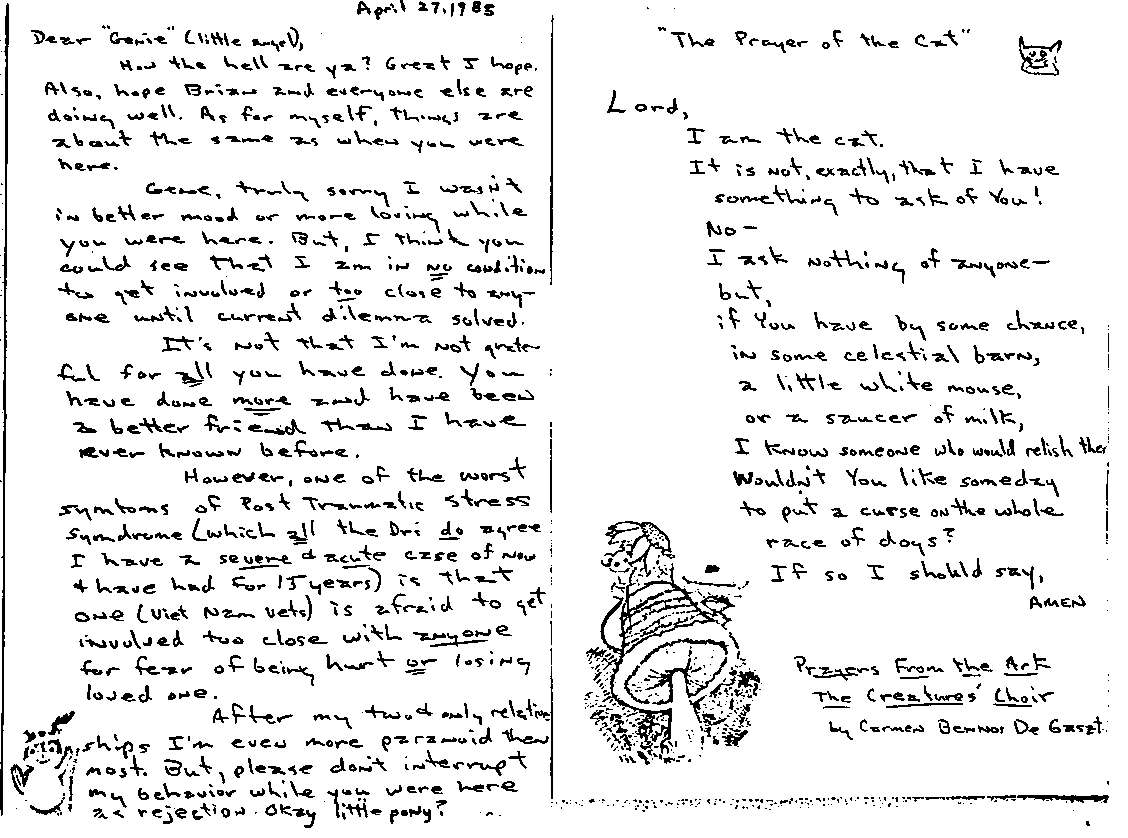 April 27, 1985
Dear "Genie" (little angel),
How the hell are ya? Great I hope.
Also, hope Brian and everyone else are
doing well. As for myself, things are
about the same as when you were
here.
Genie, truly sorry I wasn't
in better mood or more loving while
you were here. But, I think you
could see that I am in no condition
to get involved or too close to any-
one until current dilemma solved.
It's not that I'm not grate-
ful for all you have done. You
have done more and have been
a better friend than I have
ever known before.
However, one of the worst
symtoms of Post Traumatic Stress
Symdrome (which all the Drs do agree
I have a severe & acute case of now
& have had for 15 years) is that
one (Viet Nam vets) is afraid to get
involved too close with anyone
for fear of being hurt or losing
loved one.
After my two & only relation
ships I'm even more paranoid then
most. But, please don't interrupt
my behavior while you were here
as rejection. Okay little pony?
"The Prayer of the Cat"
Lord,
I am the cat.
It is not, exactly, that I have
something to ask of You!
No—
I ask nothing of anyone—
but,
if You have by some chance,
in some celestial barn,
a little white mouse,
or a saucer of milk,
I know someone who would relish them
Wouldn't You like someday
to put a curse on the whole
race of dogs?
If so I should say,
AMEN
Prayers From the Ark
The Creatures' Choir
by Carmen Bernos De Gaszt.